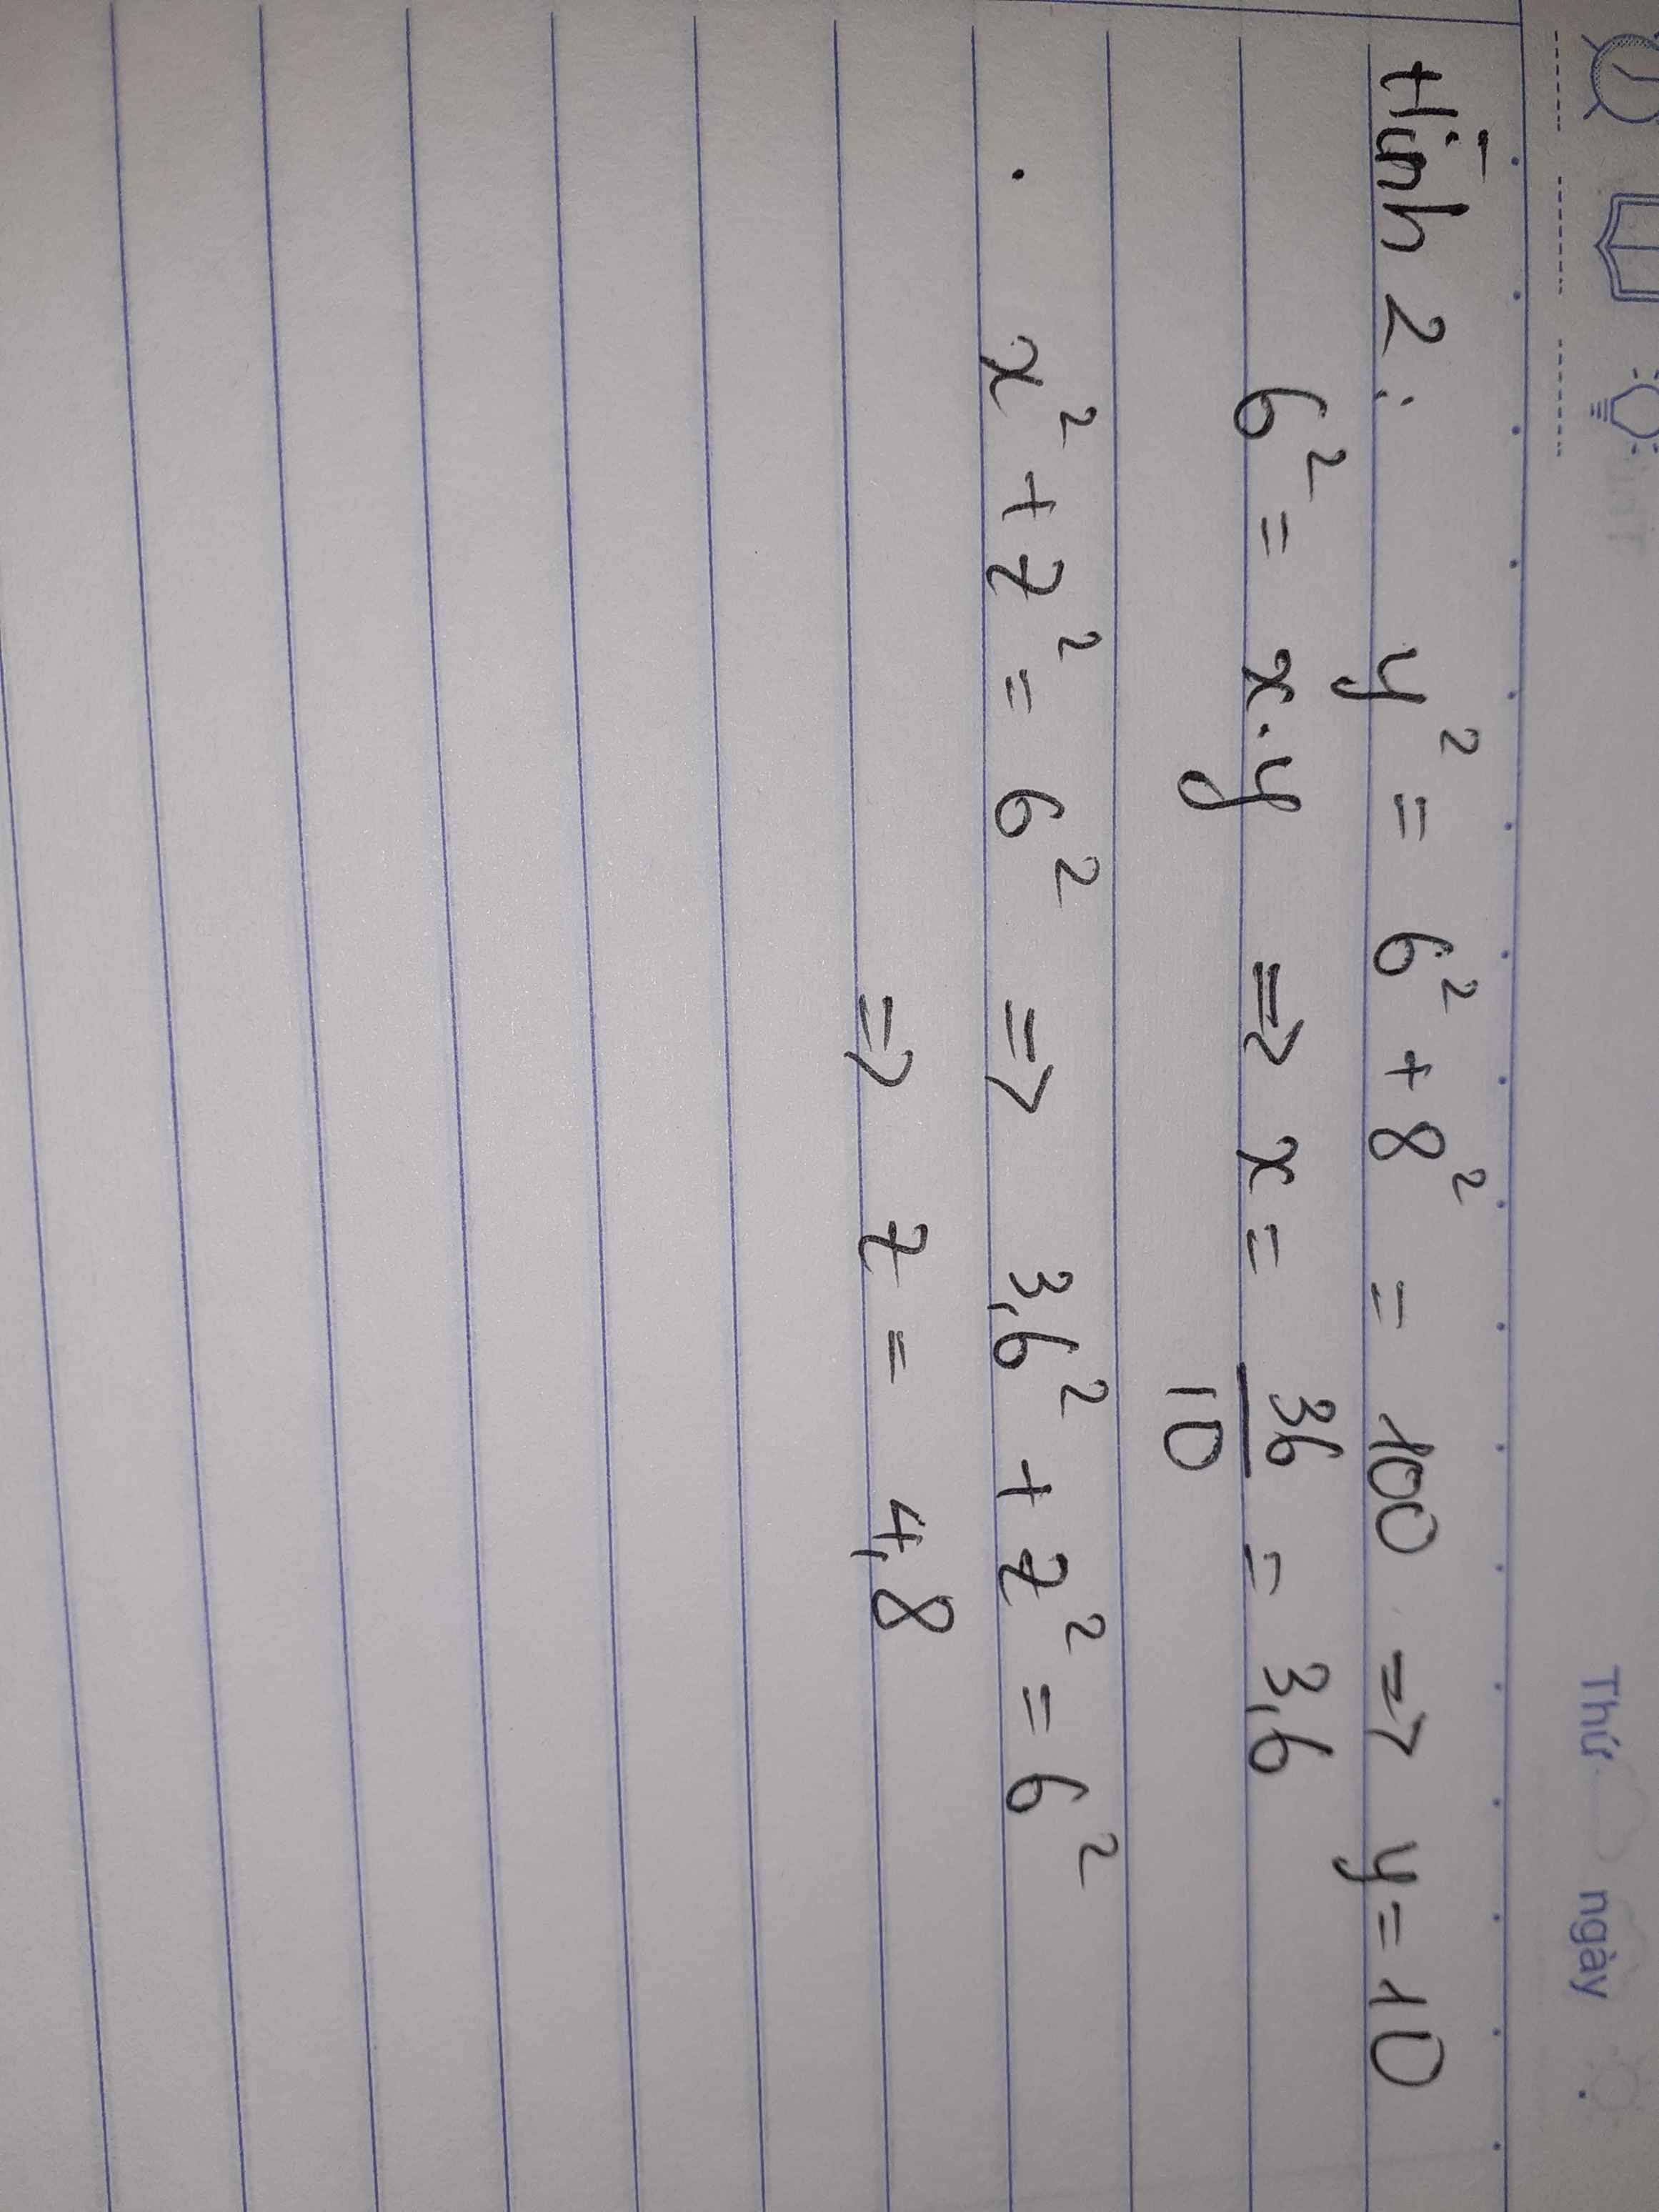 Thứ ngày
Hình 2: y² = 6² + 8² = 100 => y = 10
6² = x.y => x = 36/10 = 3,6
. x² + z² = 6² => 3,6² + z² = 6²
=> z = 4,8